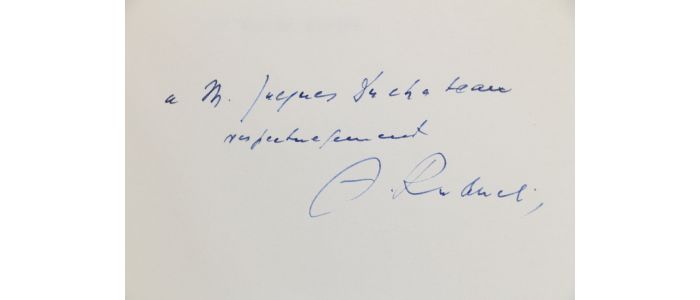 a M. Jacques Duchateau
respectueusement
A.